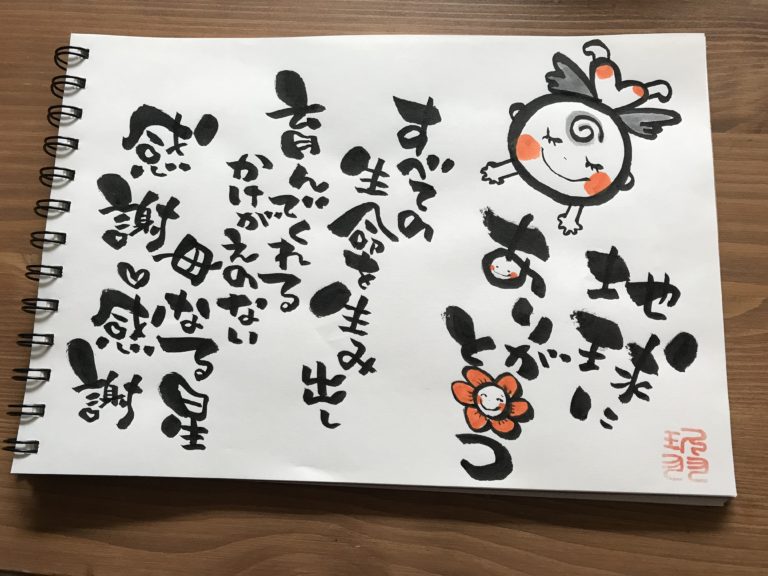 地球に
ありがとう
すべての
生命を生み出し
育んでくれる
かけがえのない
母なる星
感謝♡感謝